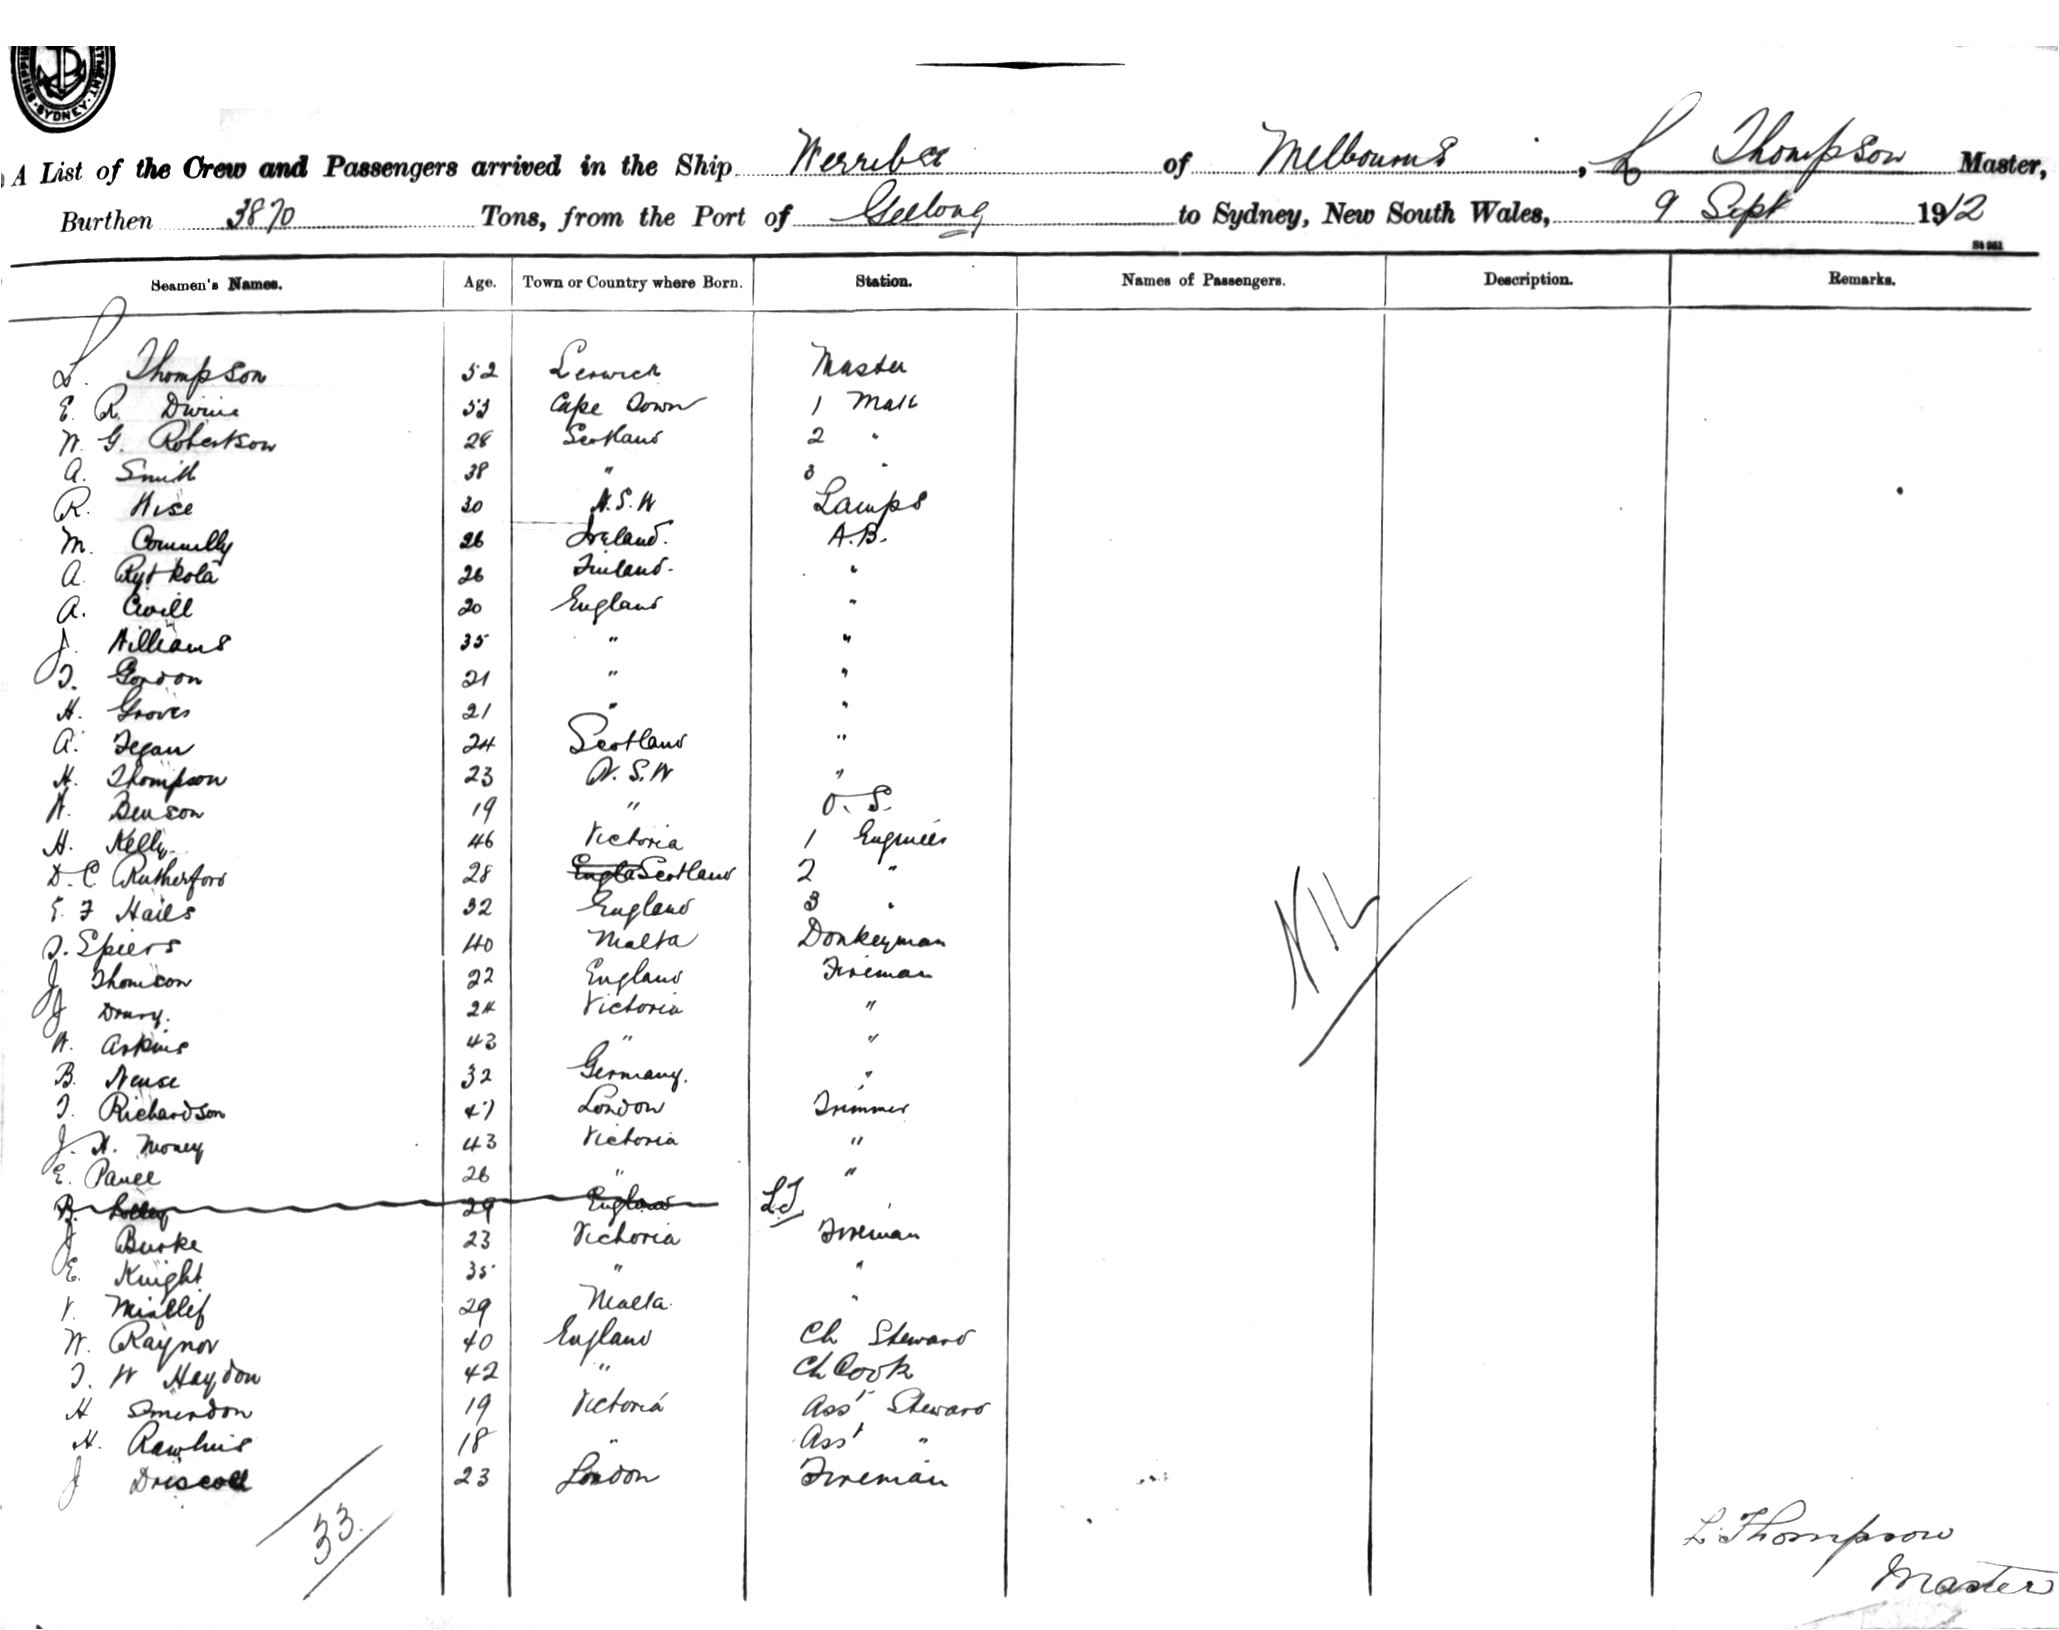 SHIPPING · SYDNEY · DEPARTMENT
A List of the Crew and Passengers arrived in the Ship Werribee of Melbourne, L Thompson Master,
Burthen 3870 Tons, from the Port of Geelong to Sydney, New South Wales, 9 Sept 1912
St 951
Seamen's Names. Age. Town or Country where Born. Station. Names of Passengers. Description. Remarks.
L. Thompson 52 Lerwick Master
E. R. Divine 53 Cape Town 1 Mate
W. G. Robertson 28 Scotland 2 "
A. Smith 38 " 3 "
R. Wise 30 N.S.W Lamps
M. Connelly 26 Ireland. A.B.
A. Rytkola 26 Finland. "
A. Civill 20 England "
J. Williams 35 " "
T. Gordon 21 " "
H. Groves 21 " "
A. Fegan 24 Scotland "
H. Thompson 23 N.S.W "
W. Benson 19 " O.S.
H. Kelly 46 Victoria 1 Engineer
D. C. Rutherford 28 Engla Scotland 2 "
E. F Hails 32 England 3 "
T. Spiers 40 Malta Donkeyman
J Thomson 22 England Fireman
J Drury. 24 Victoria "
W. Askins 43 " "
B. Neuse 32 Germany. "
T. Richardson 47 London Trimmer
J. H. Money 43 Victoria "
E. Panee 26 " "
B. 29 England LT
J Burke 23 Victoria Fireman
E. Knight 35 " "
V. Miallif 29 Malta. "
W. Raynor 40 England Ch Steward
T. W Haydon 42 " Ch Cook
H Smerdon 19 Victoria Asst Steward
H. Rawlins 18 " Asst "
J Driscoll 23 London Fireman
NIL
33.
L. Thompson
Master